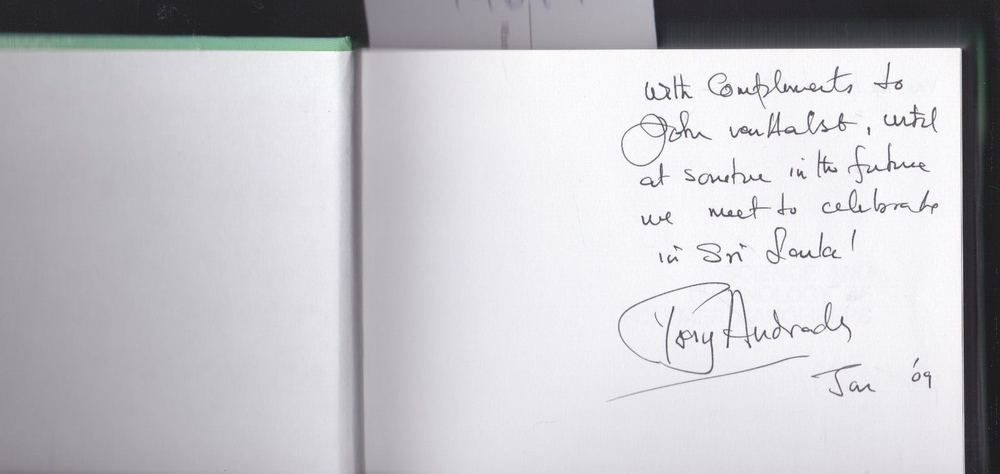 With Compliments to
John vanHalst, until
at sometime in the future
we meet to celebrate
in Sri Lanka!
Tony Andrade
Jan '09